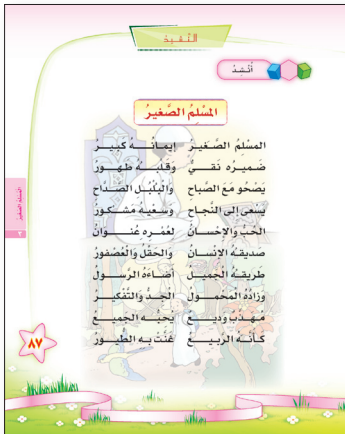 النشيد
أُنْشِدُ
المُسْلِمُ الصَّغيرُ
المسْلِمُ الصَّغير إيمانُـهُ كَبِيـرْ
ضَميرُه نَقـي وَقَلبُـهُ طَهورْ
يَصْحو مَعَ الصَّباح والبُلبُل الصدَّاح
يَسْعى إلى النَّجاح وَسعيُهُ مشكور
الحُبُّ والإحْسان لعُمْره عُنْـوَانْ
صديقهُ الإنْسان والحَقْلُ والعصْفور
طريقهُ الجَميـل أضاءَهُ الرَّسـول
وزادُهُ المَحمـول الجـدُّ والتَّفكيـرْ
مُهـذَّبٌ وَديـع يُحبُّـه الجَميـع
كـأنَّـه الرَّبيـع غنَّتْ به الطُّيـور
المُسْلِمُ الصَّغيرُ
٨٧